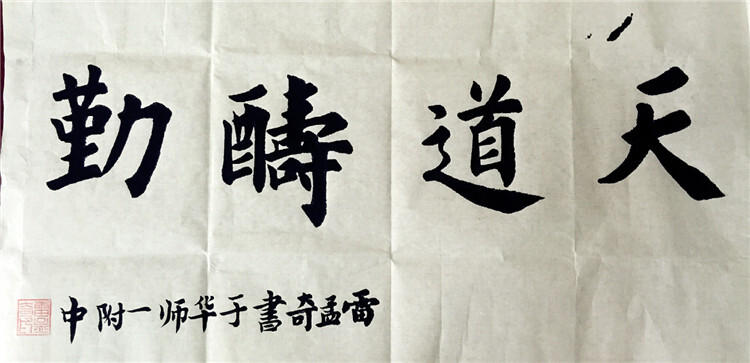 天道醻勤
雷孟奇書于华师一附中